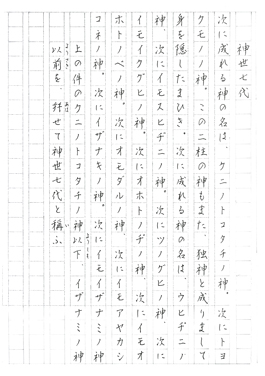 神世七代
次に成れる神の名は、クニノトコタチノ神。次にトヨ
クモノノ神。この二柱の神もまた、独神と成りまして
身を隠したまひき。次に成れる神の名は、ウヒヂニノ
神。次にイモスヒヂニノ神。次にツノグヒノ神。次に
イモイクグヒノ神。次にオホトノヂノ神。次にイモオ
ホトノベノ神。次にオモダルノ神。次にイモアヤカシ
コネノ神。次にイザナキノ神。次にイモイザナミノ神
上の件のクニノトコタチノ神以下、イザナミノ神
以前を、并せて神世七代と称ふ。